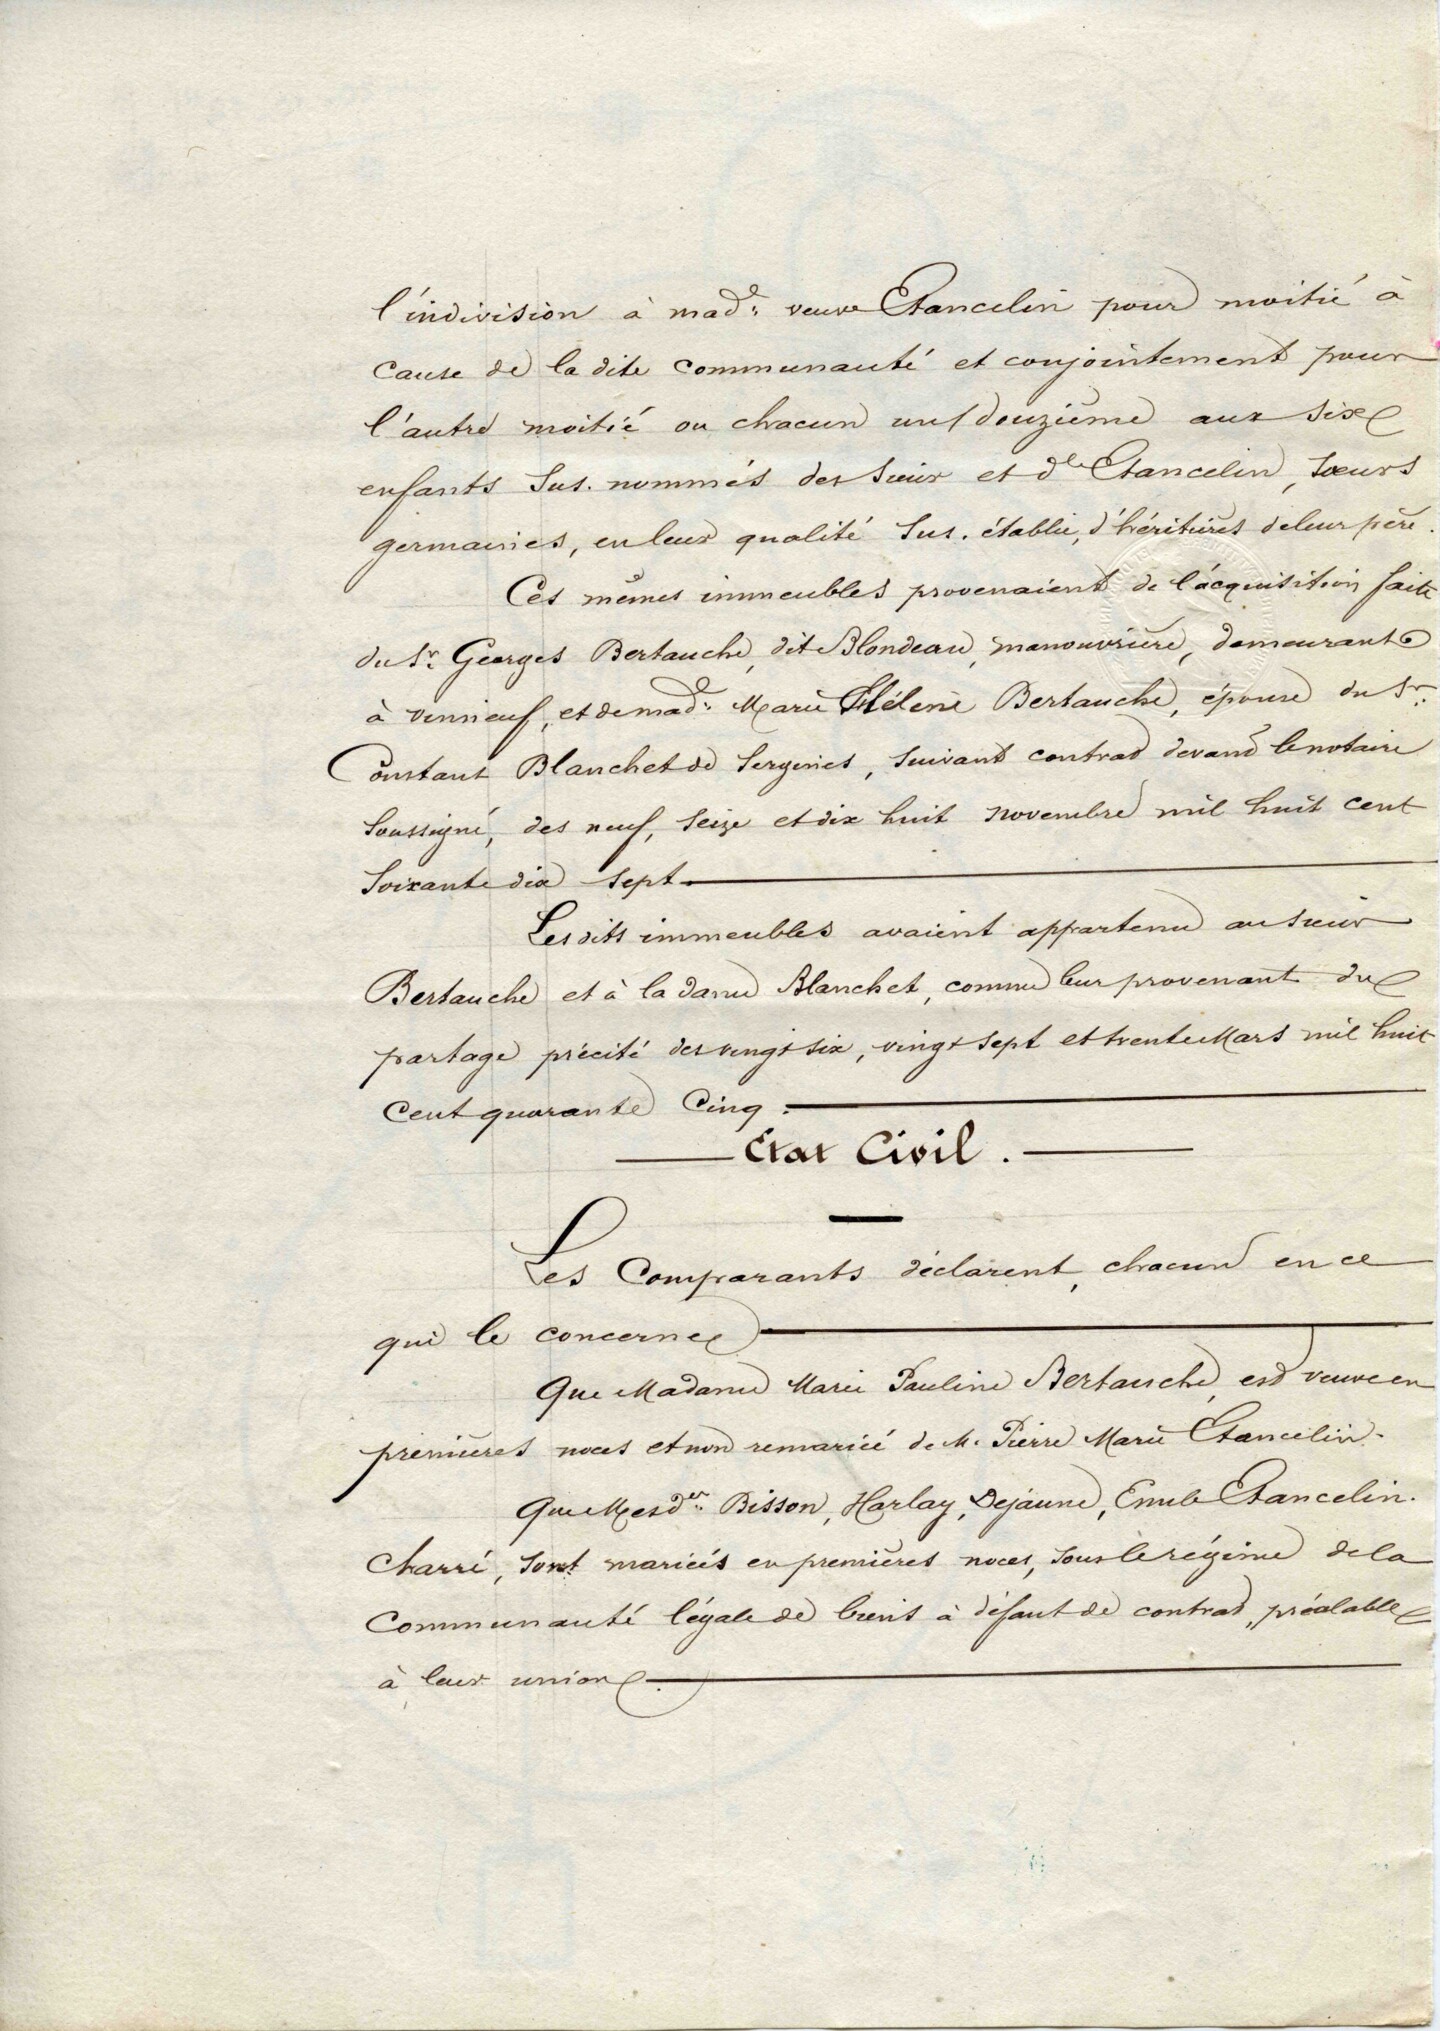 l'indivision à mad.e veuve Etancelin pour moitié à
cause de la dite communauté et conjointement pour
l'autre moitié ou chacun un/douzième aux six
enfants sus. nommés des sieur et dle Etancelin, sœurs
germaines, en leur qualité sus. établie, d'héritières de leur père.
Ces mêmes immeubles provenaient de l'acquisition faite
du Sr. Georges Bertauche, dit Blondeau, manouvrière, demeurant
à Vinneuf, et de mad.e Marie Hélène Bertauche, épouse du Sr.
Constant Blanchet de Sergines, suivant contrat devant le notaire
soussigné, des neuf, seize et dix huit novembre mil huit cent
soixante dix sept.
Les dits immeubles avaient appartenu au sieur
Bertauche et à la dame Blanchet, comme leur provenant du
partage précité des vingt six, vingt sept et trente Mars mil huit
cent quarante cinq.
Etat Civil.
Les Comparants déclarent, chacun en ce
qui le concerne
Que Madame Marie Pauline Bertauche, est veuve en
premières noces et non remariée de M. Pierre Marie Etancelin.
Que Mesd.es Bisson, Harlay, Dejaune, Emile Etancelin.
Charré, sont mariées en premières noces, sous le régime de la
Communauté légale de biens à défaut de contrat, préalable
à leur union.